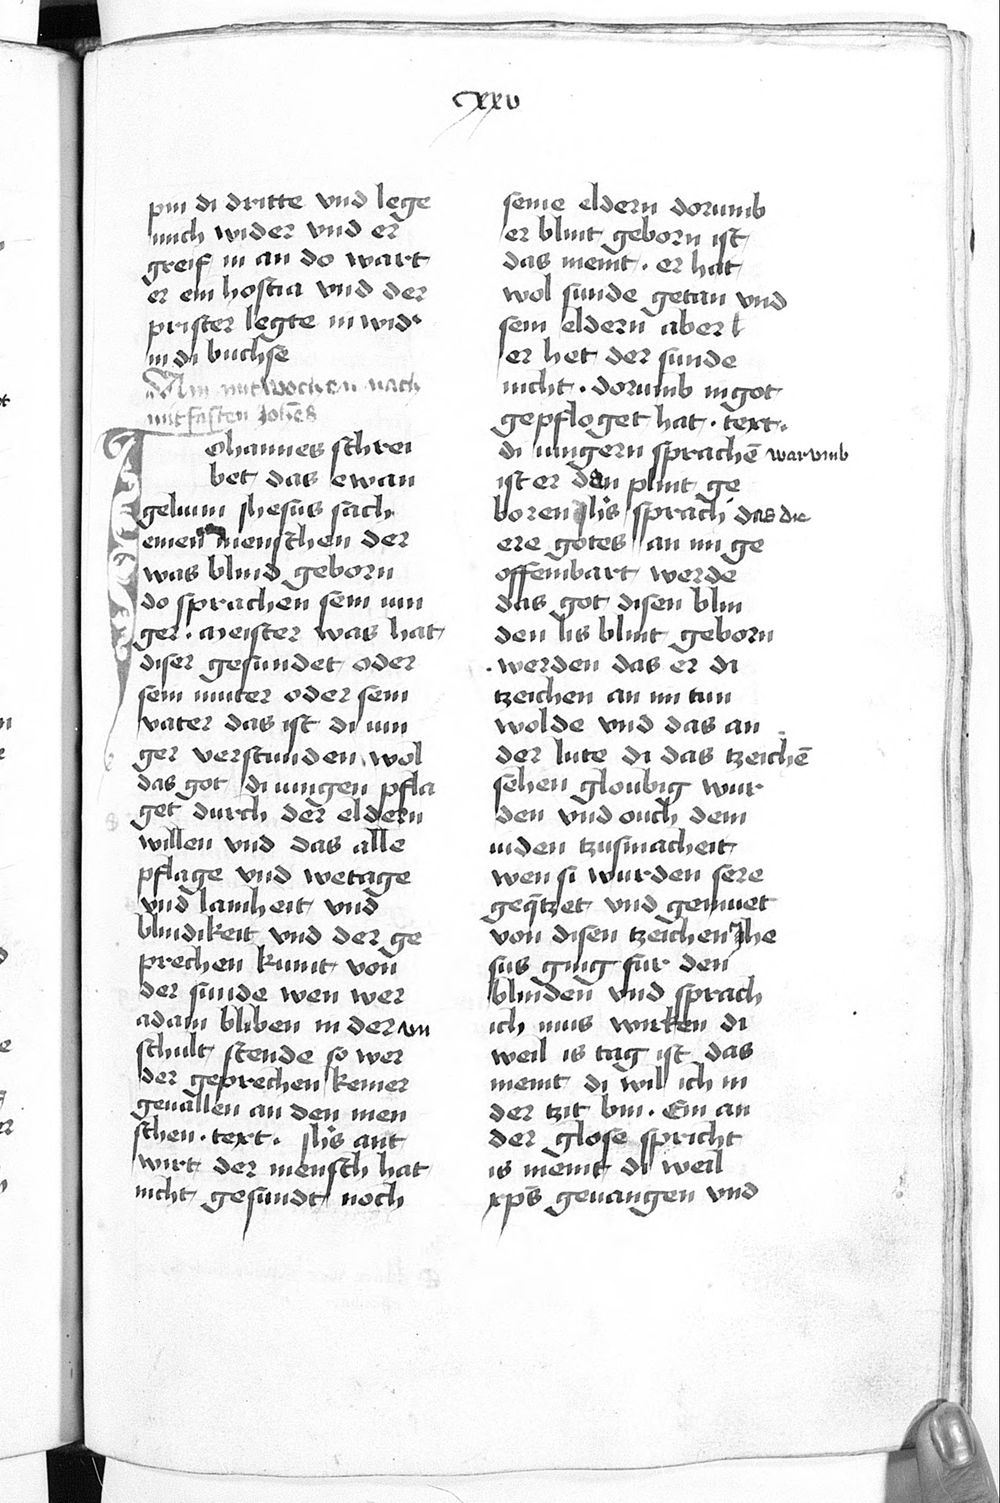 cxxv
pin di dritte vnd lege
mich wider vnd er
greif in an do wart
er ein hostia vnd der
prister legte in wider
in di buchse
Am mitwochen nach
mitfasten Johēs
Johannes schrei
bet das ewan
gelium ihesus sach
einen menschen der
was blind geborn
do sprachen sein iun
ger . meister was hat
diser gesundet oder
sein muter oder sein
vater das ist di iun
ger verstunden wol
das got di iungen pfla
get durch der eldern
willen vnd das alle
pflage vnd wetage
vnd lamheit vnd
blindikeit vnd der ge
prechen kumt von
der sunde wen wer
adam bliben in der vn
schult stende so wer
der geprechen keiner
geuallen an den men
schen . text . ihs ant
wirt der mensch hat
nicht gesundt noch
seine eldern dorumb
er blint geborn ist
das meint . er hat
wol sunde getan vnd
sein eldern aber
er het der sunde
nicht . dorumb in got
gepfloget hat . text .
di iungern sprachē warumb
ist er den plint ge
boren ihs sprach das die
ere gotes an im ge
offembart werde
das got disen blin
den lis blint geborn
werden das er di
tzeichen an im tun
wolde vnd das an
der lute di das tzeichē
sehen gloubig wur
den vnd ouch dem
iuden tzusmacheit
wen si wurden sere
geq̄tzet vnd gemuet
von disen tzeichen Jhe
sus ging fur den
blinden vnd sprach
ich mus wirken di
weil is tag ist das
meint di wil ich in
der tzit bin . Ein an
der glose spricht
is meint di weil
xp̄s geuangen vnd